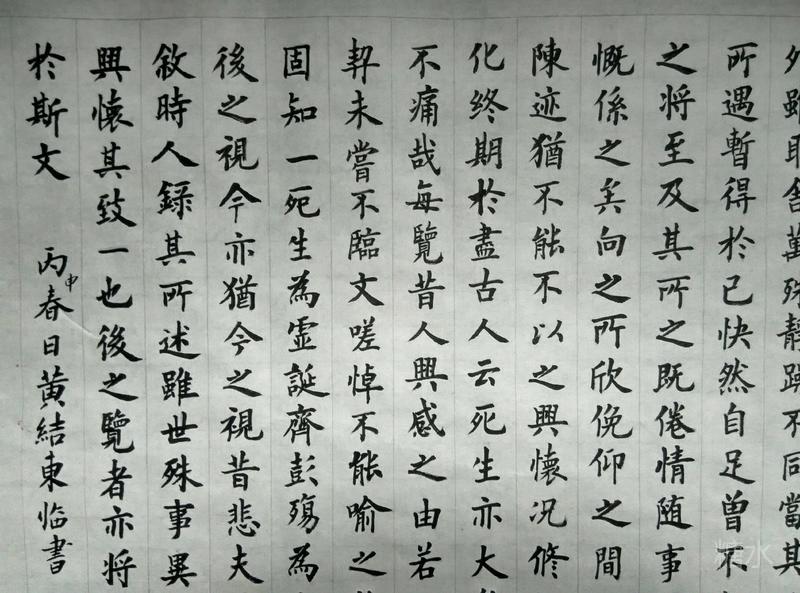 外雖取舍萬殊靜躁不同當其
所遇暫得於己快然自足曾不
之将至及其所之既倦情随事
慨係之矣向之所欣俛仰之間
陳迹猶不能不以之興懷況脩
化終期於盡古人云死生亦大
不痛哉每覽昔人興感之由若
契未嘗不臨文嗟悼不能喻之
固知一死生為虛誕齊彭殤為
後之視今亦猶今之視昔悲夫
敘時人録其所述雖世殊事異
興懷其致一也後之覽者亦將
於斯文 丙申春日黄結東临書